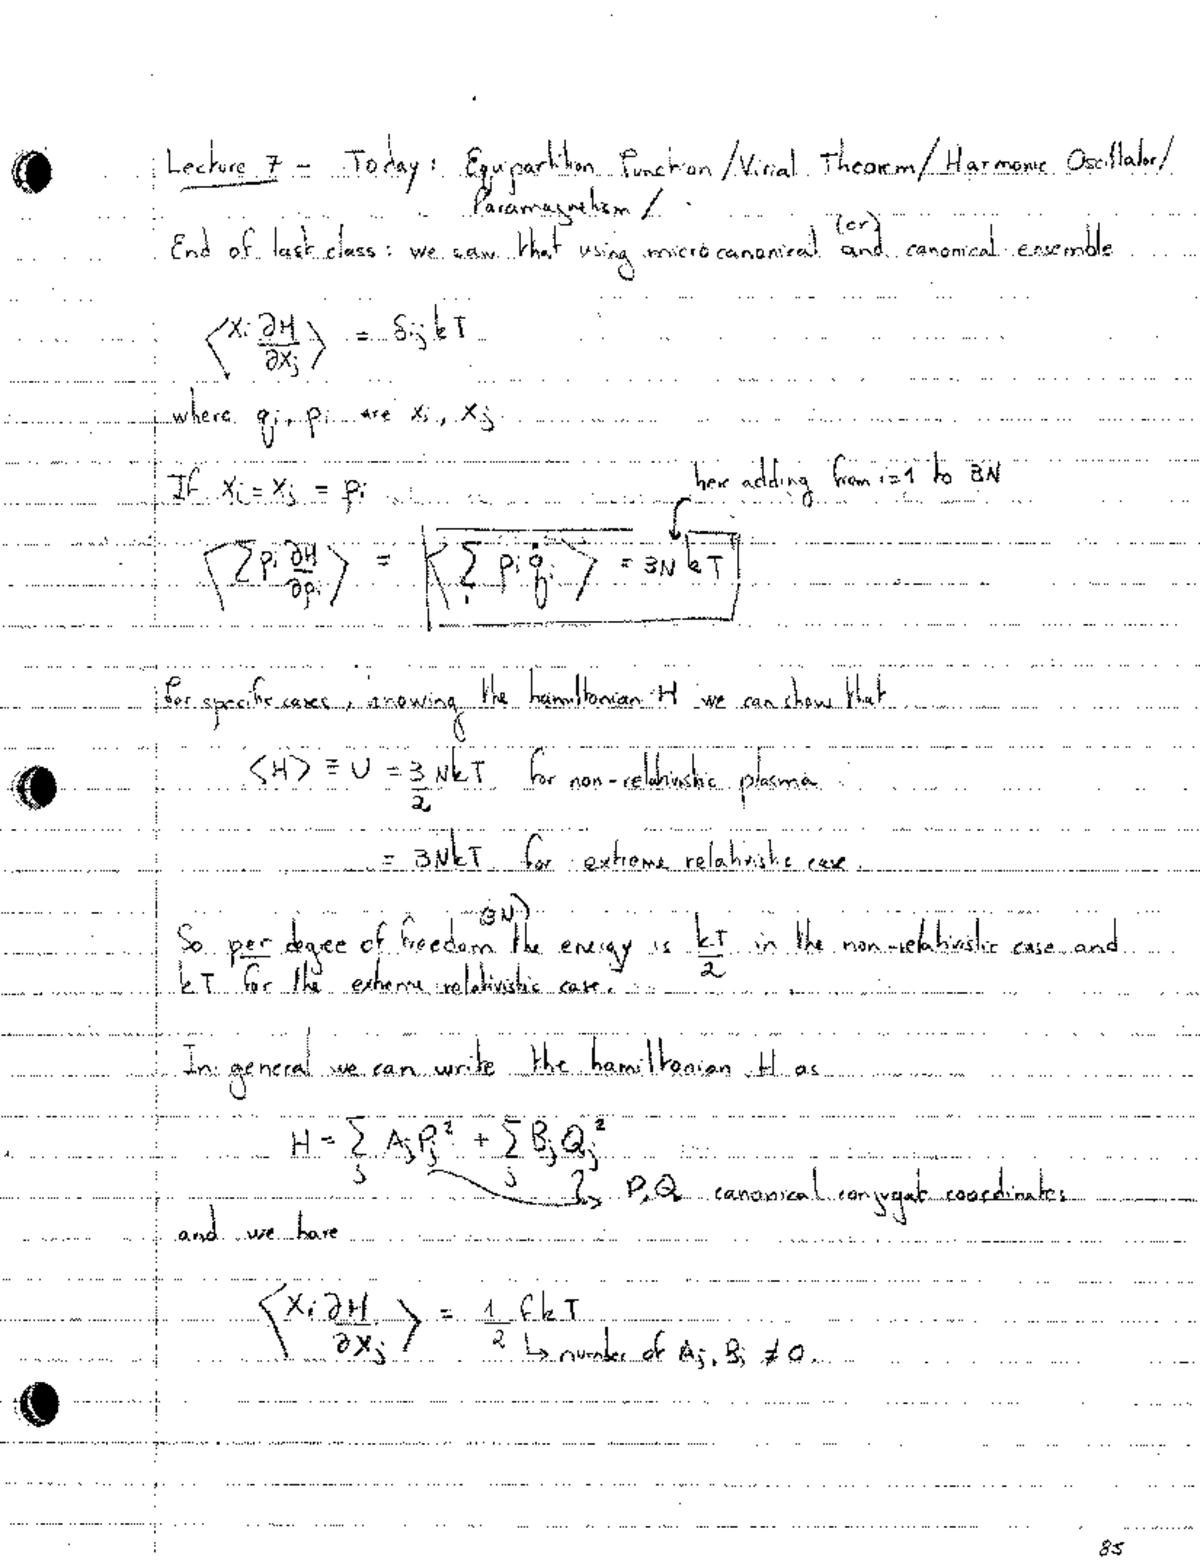 Lecture 7 - Today: Equipartition Function / Virial Theorem / Harmonic Oscillator /
Paramagnetism /
(or)
End of last class: we saw that using microcanonical and canonical ensemble
⟨xi ∂H/∂xj⟩ = δij kT
where qi, pi are xi, xj
If xi = xj = pi
here adding from i=1 to 3N
⟨∑ pi ∂H/∂pi⟩ = ⟨∑i pi q̇i⟩ = 3N kT
For specific cases, knowing the hamiltonian H we can show that
⟨H⟩ ≡ U = 3/2 NkT for non-relativistic plasma
= 3NkT for extreme relativistic case.
(3N)
So per degree of freedom the energy is kT/2 in the non-relativistic case and
kT for the extreme relativistic case.
In general we can write the hamiltonian H as
H = ∑j Aj Pj² + ∑j Bj Qj²
P, Q canonical conjugat coordinates
and we have
⟨xi ∂H/∂xj⟩ = 1/2 f kT
↳ number of Aj, Bj ≠ 0.
85